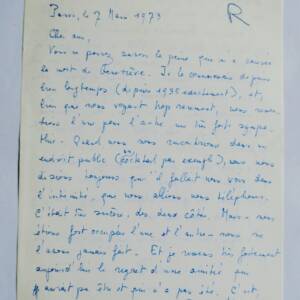 Paris, le 7 Mars 1973
R
Cher ami,
Vous ne pouvez savoir la peine que m'a causée
la mort de Je le connaissais depuis
bien longtemps (depuis 1935 exactement), et,
bien que nous voyant trop rarement, nous avions
l'un pour l'autre une très forte sympa-
thie. Quand nous nous rencontrions dans un
endroit public (un cocktail par exemple), nous nous
disions toujours qu'il fallait nous voir dans
l'intimité, que nous allions nous téléphoner.
C'était très sincère, des deux côtés. Mais nous
étions fort occupés l'un et l'autre - nous ne
l'avons jamais fait. Et je ressens très fortement
aujourd'hui le regret d'une amitié qui
aurait pu être et qui n'a pas été. C'est